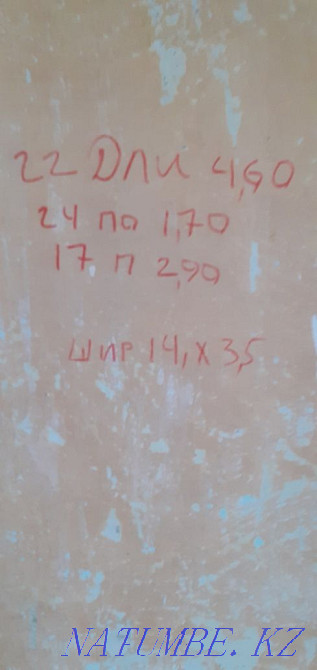 22 Дли 4,60
24 по 1,70
17 п 2,90
шир 14, х 3,5
NATUMBE. KZ